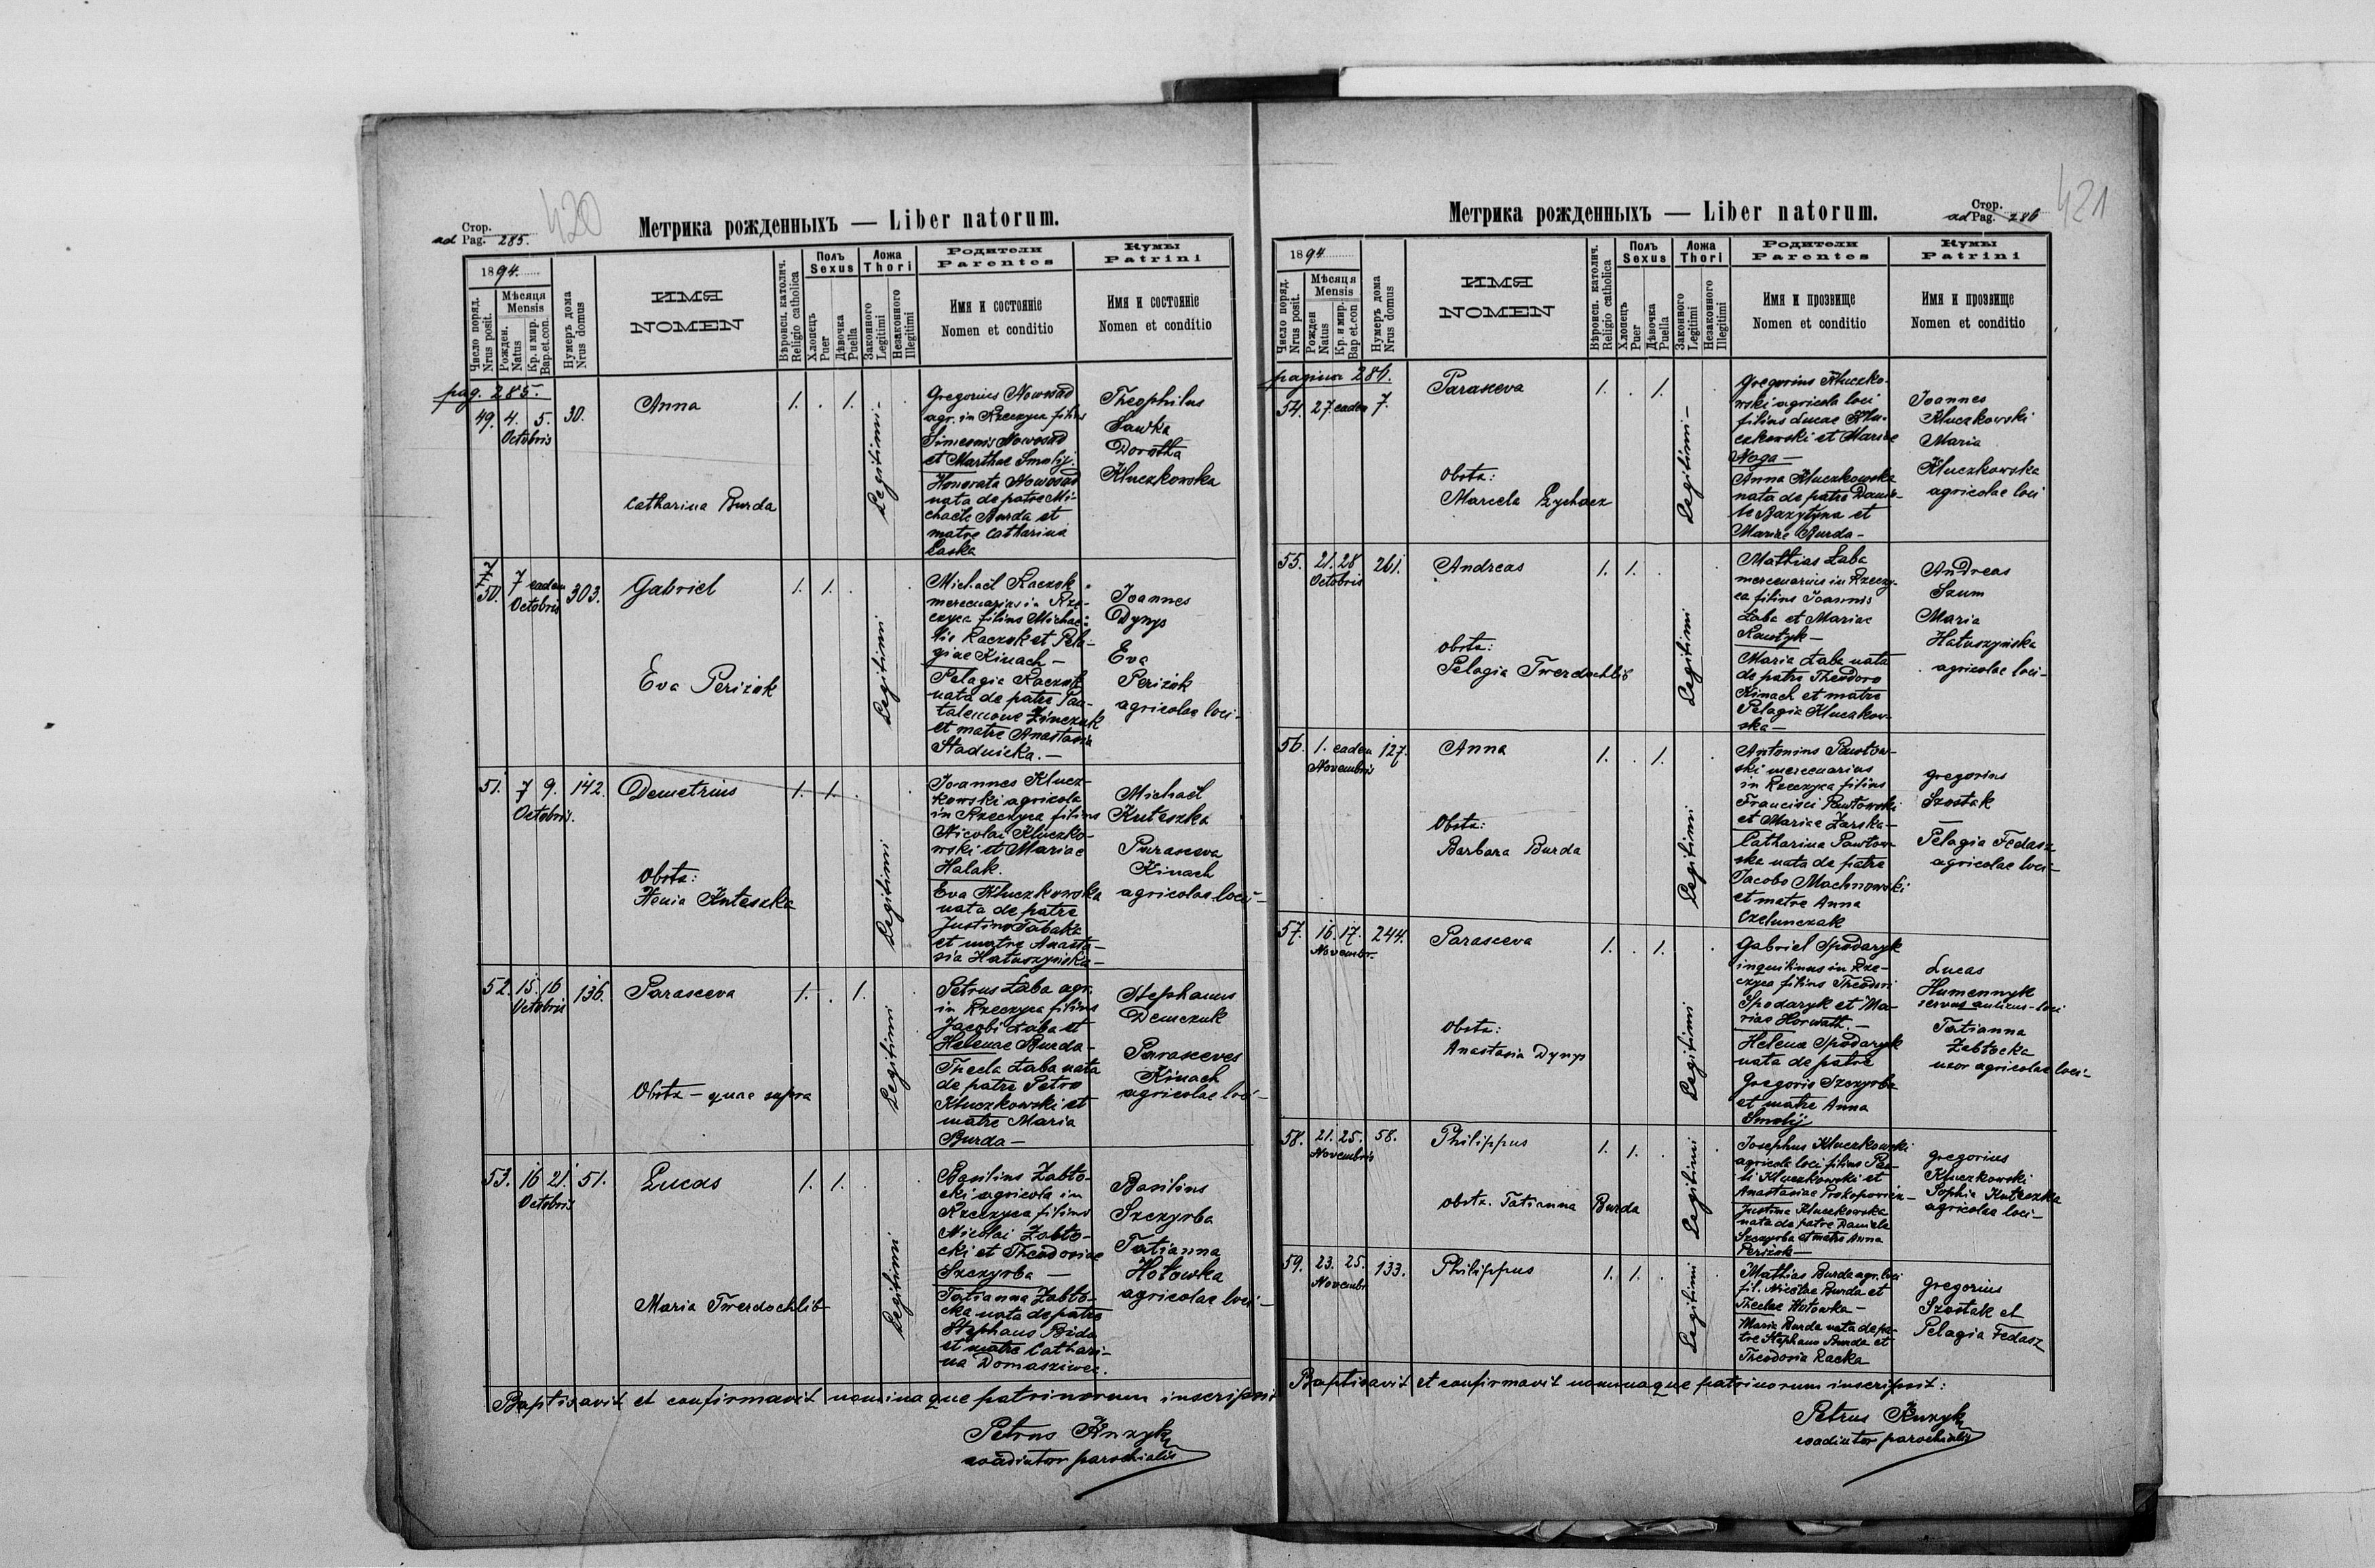 420
Стор.
ad Pag. 285.
Метрика рожденныхъ — Liber natorum.
1894.
Число поряд.
Nrus posit.
Мѣсяця
Mensis
Рожден.
Natus
Кр. и мир.
Bap.et.con.
Нумеръ дома
Nrus domus
ИМЯ
NOMEN
Вѣроисп. католич.
Religio catholica
Полъ
Sexus
Хлопецъ
Puer
Дѣвочка
Puella
Ложа
Thori
Законного
Legitimi
Незаконного
Illegitimi
Родители
Parentes
Имя и состоянie
Nomen et conditio
Кумы
Patrini
Имя и состоянie
Nomen et conditio
pag. 285.
49. 4. 5. 30.
Octobris
Anna
Catharina Burda
1. . 1. .
Legitimi-
Gregorius Nowosad
agr. in Rzeczyca filius
Simeonis Nowosad
et Marthae Smolij.
Honorata Nowosad
nata de patre Mi-
chaele Burda et
matre Catharina
Laska
Theophilus
Sawka
Dorotha
Kluczkowska
50. 7 eadem 303.
Octobris
Gabriel
Eva Perizok
1. 1. . .
Legitimi
Michael Raczok
mercenarius in Rze-
czyca filius Michae-
lis Raczok et Pela-
giae Kinach —
Pelagia Raczok
nata de patre Pan-
talemone Zinczuk
et matre Anastasia
Stadnicka. —
Joannes
Dynys
Eva
Perizok
agricolae loci-
51. 7 9. 142.
Octobris.
Demetrius
Obstz:
Xenia Kuteszka
1. 1. . .
Legitimi
Joannes Klucz-
kowski agricola
in Rzeczyca filius
Nicolai Kluczko-
wski et Mariae
Halak.
Eva Kluczkowska
nata de patre
Justino Tabaka
et matre Anasta-
sia Hatuszynska-
Michael
Kuteszka
Parasceva
Kinach
agricolae loci-
52. 15. 16 136.
Octobris
Parasceva
Obstz — quae supra
1. . 1.
Legitimi
Petrus Łaba agr.
in Rzeczyca filius
Jacobi Łaba et
Helenae Burda-
Thecla Łaba nata
de patre Petro
Kluczkowski et
matre Maria
Burda —
Stephanus
Demczuk
Parasceves
Kinach
agricolae loci-
53. 16 21. 51.
Octobris
Lucas
Maria Twerdochlib
1. 1. . .
Legitimi
Basilius Zabło-
cki agricola in
Rzeczyca filius
Nicolai Zabło-
cki et Theodosiae
Szczyrba —
Tatianna Zabło-
cka nata de patre
Stephano Bida
et matre Cathari-
na Domasziwec.
Basilius
Szczyrba
Tatianna
Hołowka
agricolae loci-
Baptisavit et confirmavit nominaque patrinorum inscripsit
Petrus Kuzyk
coadiutor parochialis
421
Метрика рожденныхъ — Liber natorum.
Стор.
ad Pag. 286
1894
Число поряд.
Nrus posit.
Мѣсяця
Mensis
Рожден
Natus
Кр. и мир.
Bap et.con
Нумеръ дома
Nrus domus
ИМЯ
NOMEN
Вѣроисп. католич.
Religio catholica
Полъ
Sexus
Хлопецъ
Puer
Дѣвочка
Puella
Ложа
Thori
Законного
Legitimi
Незаконного
Illegitimi
Родители
Parentes
Имя и прозвище
Nomen et conditio
Кумы
Patrini
Имя и прозвище
Nomen et conditio
pagina 286.
54. 27. eadem 7.
Parasceva
Obstz:
Marcela Rychacz
1. . 1. .
Legitimi —
Gregorius Kluczko-
wski agricola loci
filius Lucae Klu-
czkowski et Mariae
Noga —
Anna Kluczkowska
nata de patre Danie-
le Bazytyna et
Mariae Burda-
Joannes
Kluczkowski
Maria
Kluczkowska
agricolae loci
55. 21. 28. 261.
Octobris
Andreas
Obstz:
Pelagia Twerdochlib
1. 1. . .
Legitimi
Mathias Łaba
mercenarius in Rzeczy-
ca filius Joannis
Łaba et Mariae
Kostyk —
Maria Łaba nata
de patre Theodoro
Kinach et matre
Pelagia Kluczkow-
ska —
Andreas
Szum
Maria
Hatuszynska
agricolae loci-
56. 1. eadem 127.
Novembris
Anna
Obstz:
Barbara Burda
1. . 1. .
Legitimi
Antonius Pawłow-
ski mercenarius
in Rzeczyca filius
Francisci Pawłowski
et Mariae Zarska—
Catharina Pawłow-
ska nata de patre
Jacobo Machnowski
et matre Anna
Czelunczak
Gregorius
Szostak
Pelagia Fedasz
agricolae loci-
57. 16. 17. 244.
Novembr.
Parasceva
Obstz:
Anastasia Dynys
1. . 1. .
Legitimi
Gabriel Spodaryk
inquilinus in Rze-
czyca filius Theodori
Spodaryk et Ma-
riae Horwath. —
Helena Spodaryk
nata de patre
Gregorio Szczyrba
et matre Anna
Smolij
Lucas
Humennyk
servus aulicus-loci
Tatianna
Zabłocka
uxor agricolae loci-
58. 21. 25. 58.
Novembris
Philippus
Obstz. Tatianna Burda
1. 1. . .
Legitimi
Josephus Kluczkowski
agricola loci filius Pau-
li Kluczkowski et
Anastasiae Prokopowicz-
Justina Kluczkowska
nata de patre Daniele
Szczyrba et matre Anna
Perizok —
Gregorius
Kluczkowski
Sophia Kuteszka
agricolae loci-
59. 23. 25. 133.
Novembr
Philippus
1. 1. . .
Legitimi
Mathias Burda agr. loci
fil. Nicolae Burda et
Theclae Hołowka —
Maria Burda nata de pa-
tre Stephano Burda et
Theodosia Racka
Gregorius
Szostak et
Pelagia Fedasz
Baptisavit et confirmavit nominaque patrinorum inscripsit:
Petrus Kuzyk
coadiutor parochialis